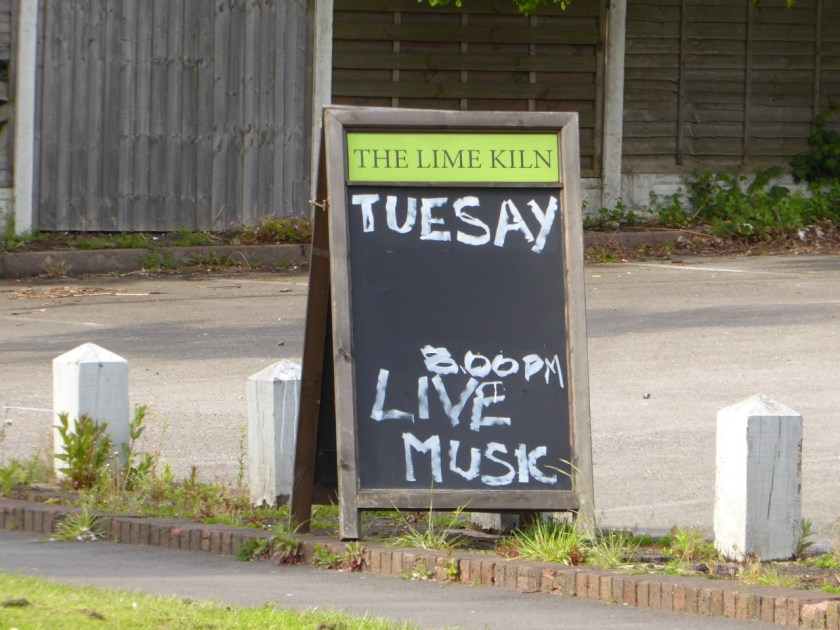 THE LIME KILN
TUESAY
8.00PM
LIVE
MUSIC